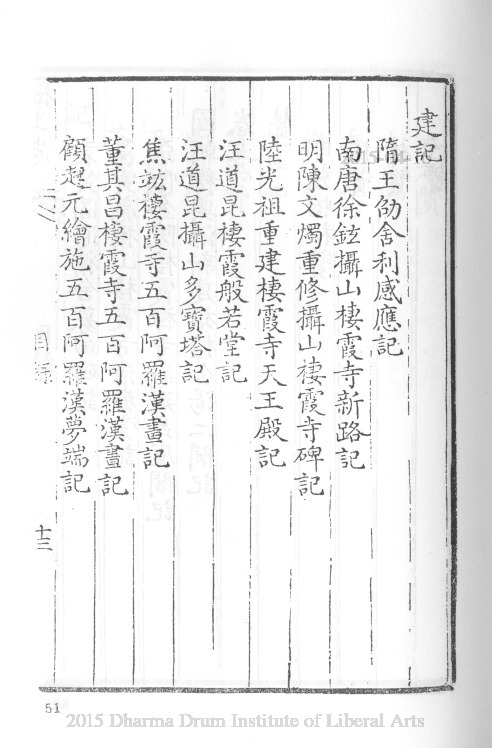 建記
隋王劭舍利感應記
南唐徐鉉攝山棲霞寺新路記
明陳文燭重修攝山棲霞寺碑記
陸光祖重建棲霞寺天王殿記
汪道昆棲霞般若堂記
汪道昆攝山多寶塔記
焦竑棲霞寺五百阿羅漢畫記
董其昌棲霞寺五百阿羅漢畫記
顧起元繪施五百阿羅漢夢端記
目錄
十三
51
2015 Dharma Drum Institute of Liberal Arts